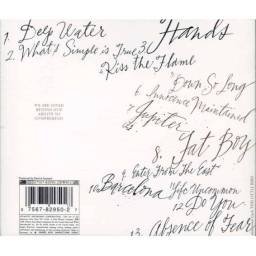 1. Deep Water
2. What's Simple is True
3. Hands
Kiss the Flame
5. Down So Long
6. Innocence Maintained
Jupiter
8. Fat Boy
9. Enter From The East
10. Barcelona
Life Uncommon
12. Do You
13. Absence of Fear
WE ARE LOVED
BEYOND OUR
ABILITY TO
COMPREHEND
7 5678-82950-2 7